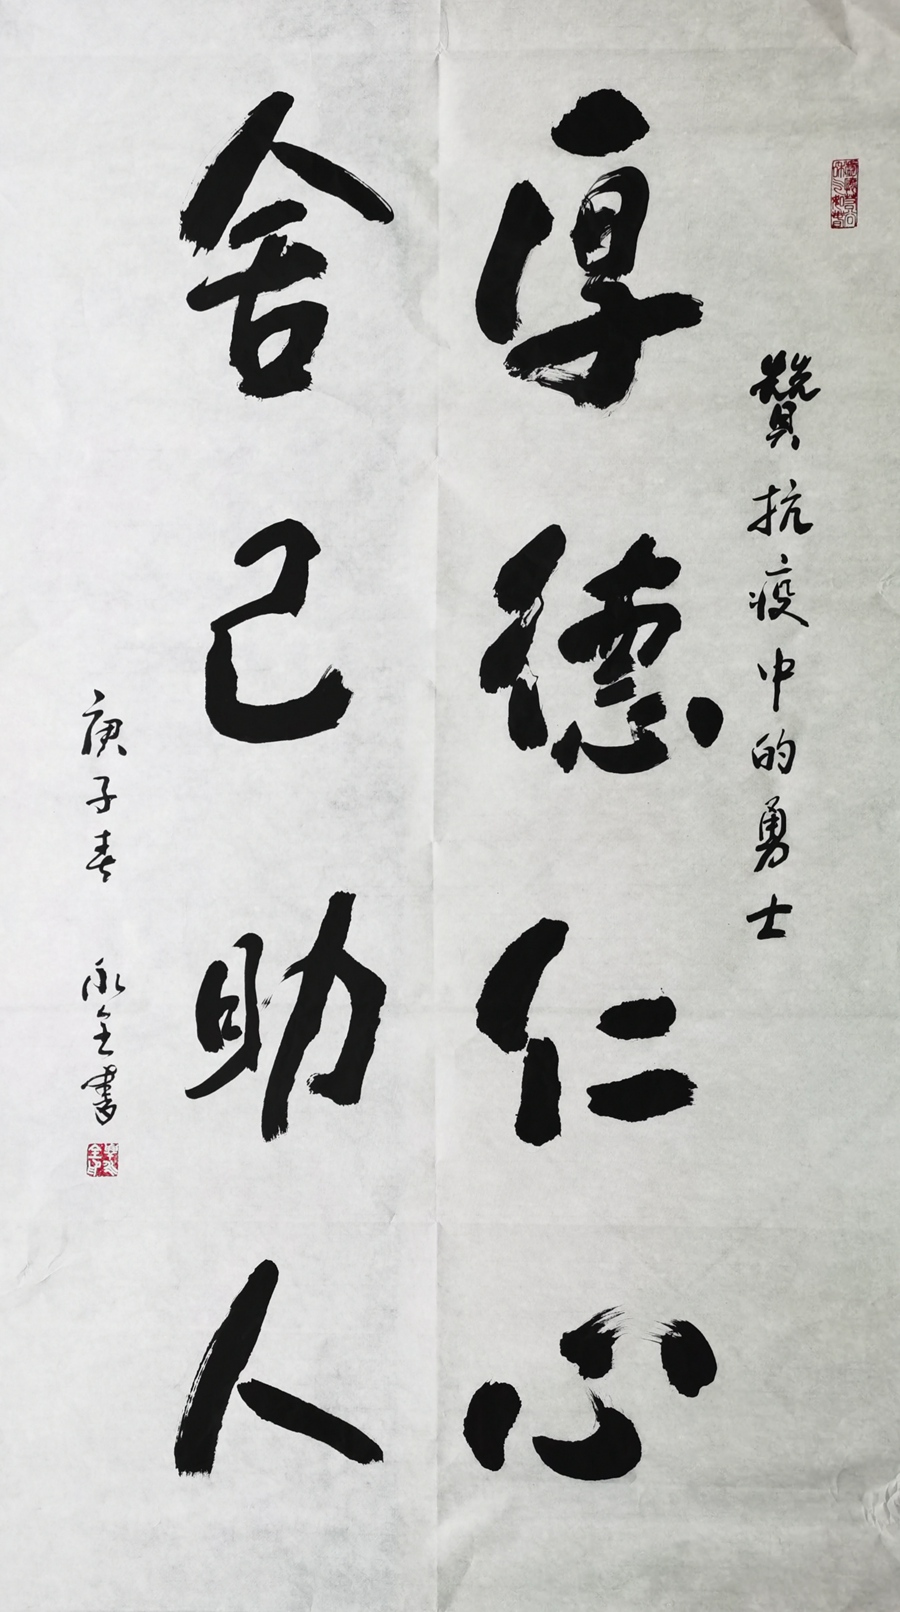 赞抗疫中的勇士
厚德仁心
舍己助人
庚子春 永全书